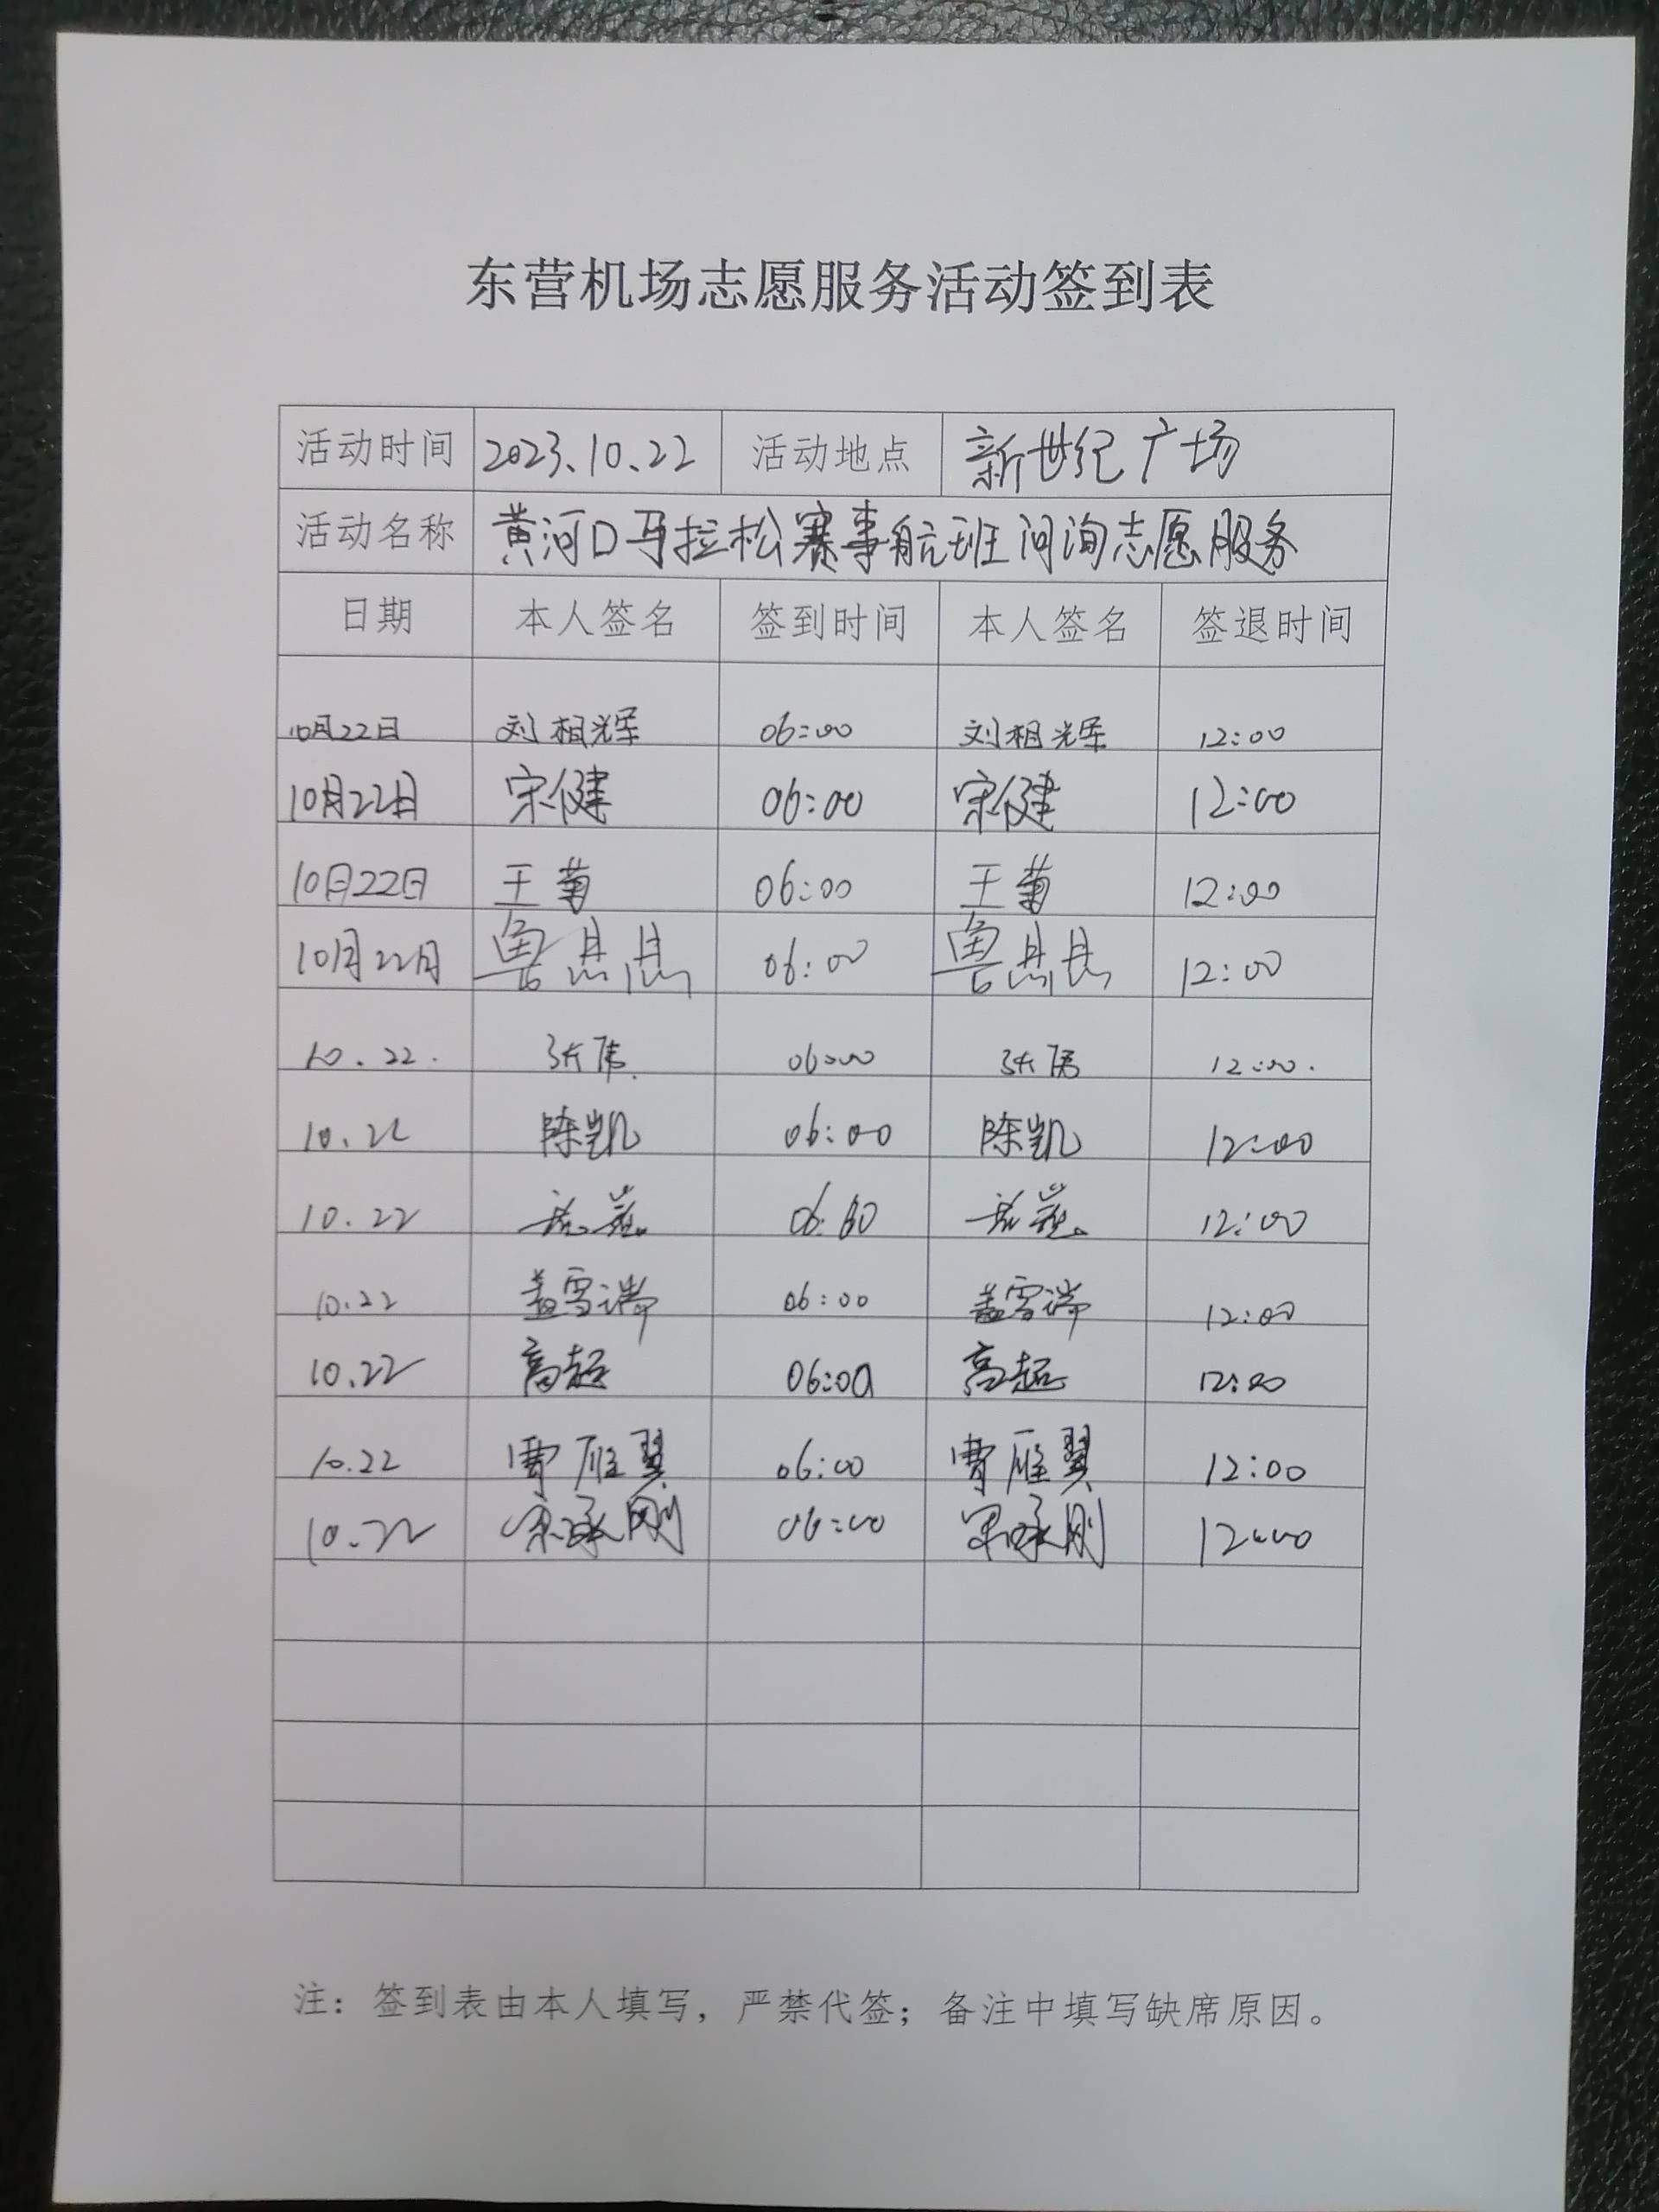 东营机场志愿服务活动签到表
活动时间 2023.10.22 活动地点 新世纪广场
活动名称 黄河口马拉松赛事航班问询志愿服务
日期 本人签名 签到时间 本人签名 签退时间
10月22日 刘相辉 06:00 刘相辉 12:00
10月22日 宋健 06:00 宋健 12:00
10月22日 王菊 06:00 王菊 12:00
10月22日 鲁 06:00 鲁 12:00
10.22. 张 06:00 张 12:00.
10.22 陈凯 06:00 陈凯 12:00
10.22 06:00 12:00
10.22 盖雪瑞 06:00 盖雪瑞 12:00
10.22 高超 06:00 高超 12:00
10.22 曹雁翼 06:00 曹雁翼 12:00
10.22 宋承刚 06:00 宋承刚 12:00
注：签到表由本人填写，严禁代签；备注中填写缺席原因。